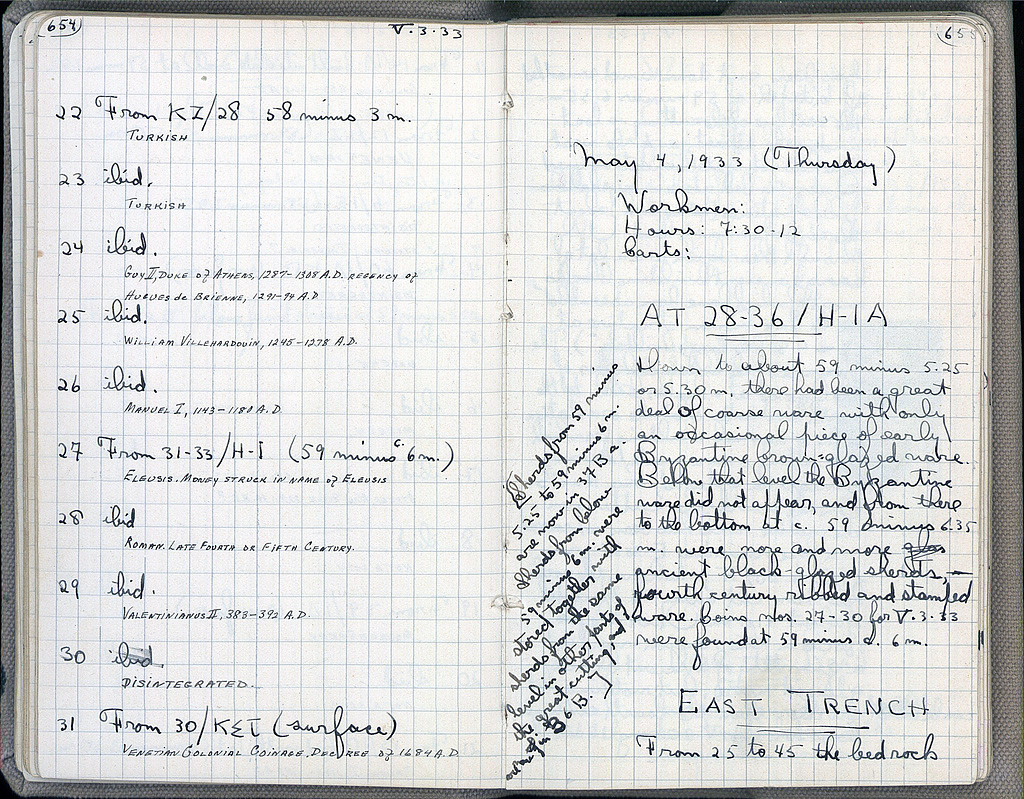 654
V.3.33
22 From KZ/28 58 minus 3 m.
TURKISH
23 ibid.
TURKISH
24 ibid.
GUY II, DUKE OF ATHENS, 1287-1308 A.D. REGENCY OF
HUGUES de BRIENNE, 1291-94 A.D
25 ibid.
WILLIAM VILLEHARDOUIN, 1245-1278 A.D.
26 ibid.
MANUEL I, 1143-1180 A.D.
27 From 31-33/H-I (59 minus c. 6 m.)
ELEUSIS. MONEY STRUCK IN NAME OF ELEUSIS
28 ibid
ROMAN. LATE FOURTH OR FIFTH CENTURY.
29 ibid.
VALENTINIANUS II, 383-392 A.D.
30 ibid.
DISINTEGRATED.
31 From 30/KΣT (surface)
VENETIAN COLONIAL COINAGE. DECREE OF 1684 A.D
655
May 4, 1933 (Thursday)
Workmen:
Hours: 7:30-12
Carts:
AT 28-36/H-IA
Down to about 59 minus 5.25
or 5.30 m. there had been a great
deal of coarse ware with only
an occasional piece of early
Byzantine brown-glazed ware.
Below that level the Byzantine
ware did not appear, and from there
to the bottom at c. 59 minus 6.35
m. were more and more
ancient black-glazed sherds, —
fourth century ribbed and stamped
ware. Coins nos. 27-30 for V.3.33
were found at 59 minus c. 6 m.
[Sherds from 59 minus
5.25 to 59 minus 6 m.
are now in 37 B
Sherds from below
59 minus 6 m. were
stored together with
sherds from the same
level in other parts of
the great cutting, and
in 36 B.]
EAST TRENCH
From 25 to 45 the bedrock